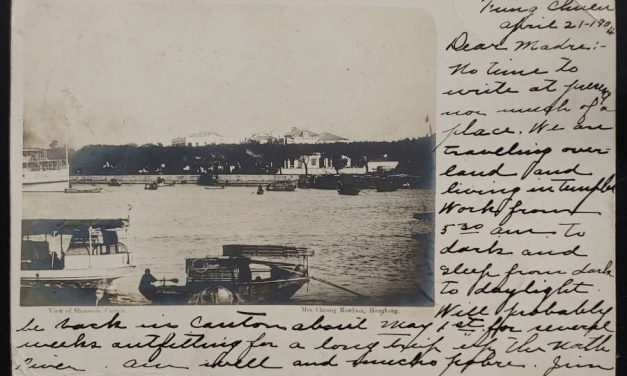 Tung Chuen
April 21-1904
Dear Madre:-
No time to
write at present
nor much of a
place. We are
traveling over-
land and
living in temples
Work from
5 30 am. to
dark and
sleep from dark
to daylight.
Will probably
View of Shameen, Canton.
Mee Cheung Kowloon, Hongkong.
be back in Canton about May 1st. for several
weeks outfitting for a long trip up the North
River. am well and mucho pobre. Jim